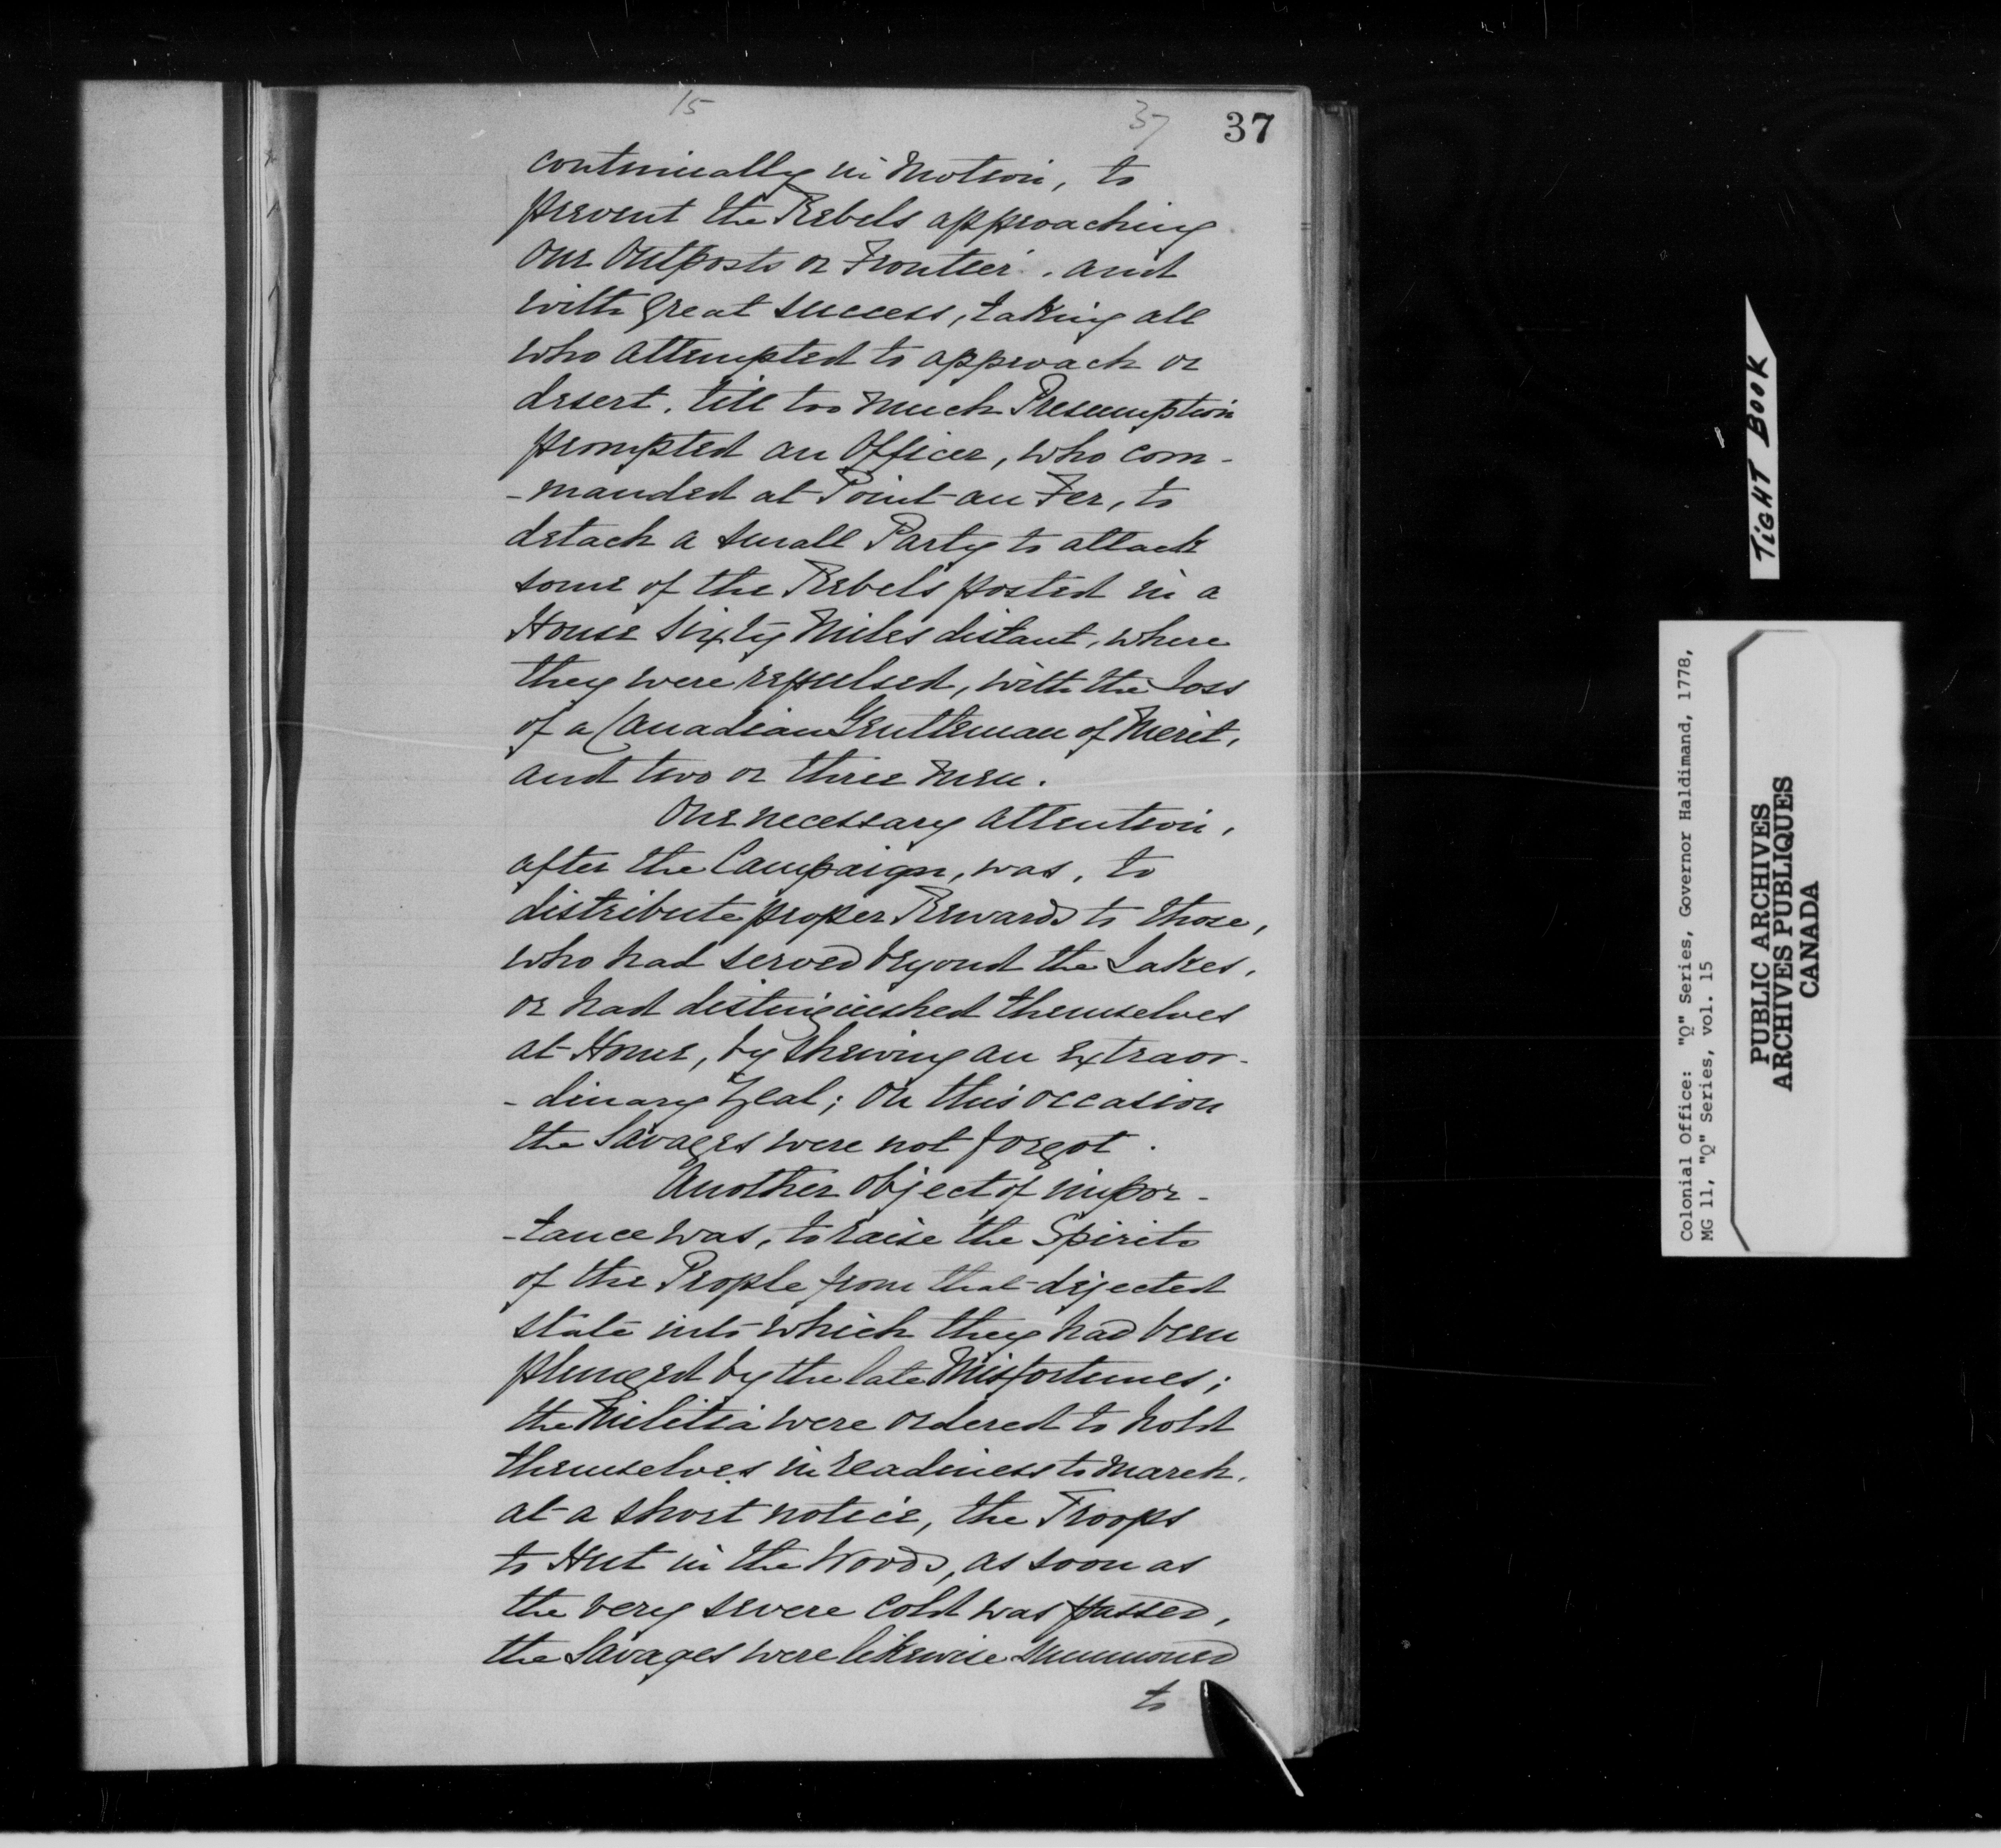 15
37
37
continually in Motion, to
prevent the Rebels approaching
our Outposts or Frontier, and
with great success, taking all
who attempted to approach or
desert, till too much Presumption
prompted an Officer, who com-
-manded at Point au Fer, to
detach a small Party to attack
some of the Rebels posted in a
House Sixty Miles distant, where
they were repulsed, with the Loss
of a Canadian Gentleman of Merit,
and two or three Men.
One necessary attention,
after the Campaign, was, to
distribute proper Rewards to those,
who had served beyond the Lakes,
or had distinguished themselves
at Home, by shewing an extraor-
-dinary Zeal; on this occasion
the Savages were not forgot.
Another object of impor-
-tance was, to raise the Spirits
of the People from that dejected
state into which they had been
plunged by the late Misfortunes;
the Militia were ordered to hold
themselves in readiness to March,
at a short notice, the Troops
to Hut in the Woods, as soon as
the very severe Cold was passed,
the Savages were likewise summoned
to
TIGHT BOOK
Colonial Office: "Q" Series, Governor Haldimand, 1778,
MG 11, "Q" Series, vol. 15
PUBLIC ARCHIVES
ARCHIVES PUBLIQUES
CANADA